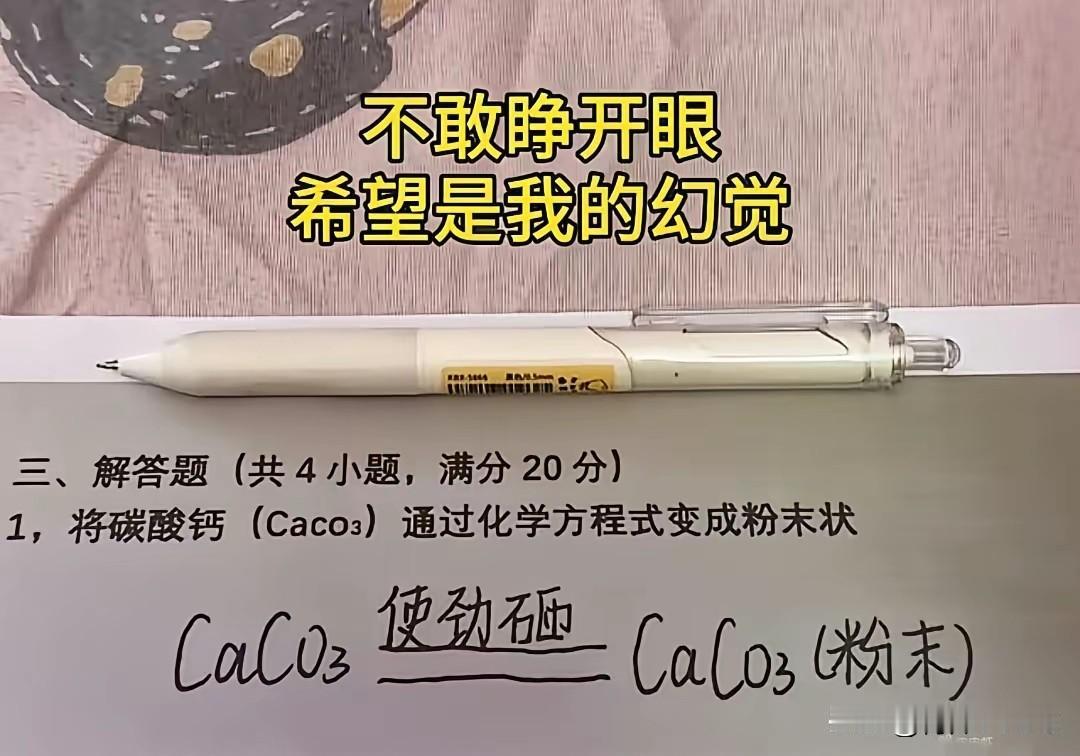 不敢睁开眼
希望是我的幻觉
三、解答题（共 4 小题，满分 20 分）
1，将碳酸钙（Caco₃）通过化学方程式变成粉末状
使劲砸
CaCO₃ ══ CaCO₃（粉末）